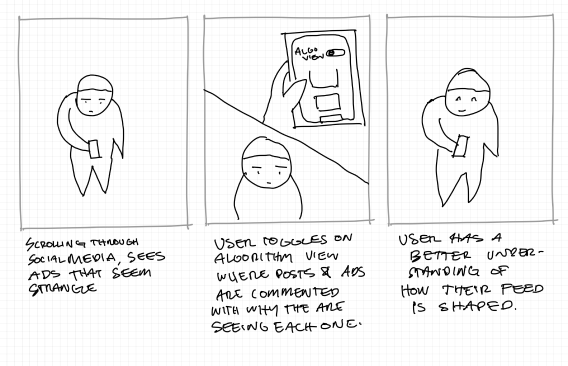 ALGO
VIEW
SCROLLING THROUGH
SOCIAL MEDIA, SEES
ADS THAT SEEM
STRANGLE
USER TOGGLES ON
ALGORITHM VIEW
WHERE POSTS & ADS
ARE COMMENTED
WITH WHY THE ARE
SEEING EACH ONE.
USER HAS A
BETTER UNDER-
STANDING OF
HOW THEIR FEED
IS SHAPED.